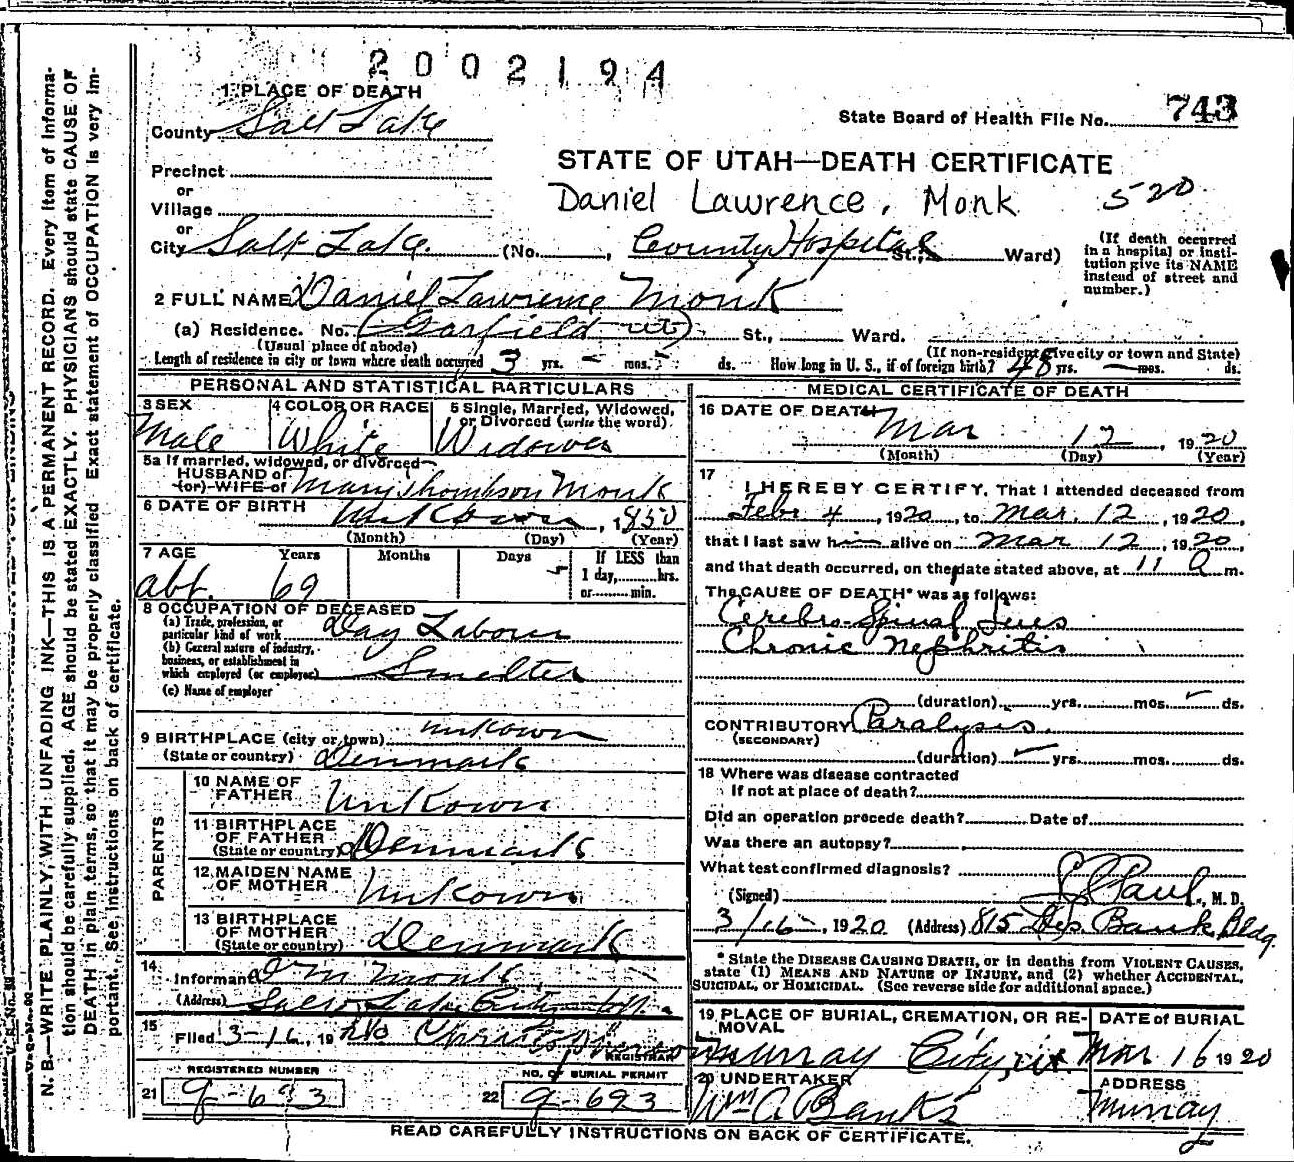 2002194
1 PLACE OF DEATH
County Salt Lake
State Board of Health File No. 743
STATE OF UTAH—DEATH CERTIFICATE
Precinct
or
Village
Daniel Lawrence, Monk 520
or
City Salt Lake. (No. , County Hospital St., Ward)
(If death occurred in a hospital or institution give its NAME instead of street and number.)
2 FULL NAME Daniel Lawrence Monk
(a) Residence. No. (Garfield Ut) St., Ward.
(Usual place of abode) (If non-resident give city or town and State)
Length of residence in city or town where death occurred 3 yrs. – mos. ds. How long in U. S., if of foreign birth? 48 yrs. — mos. ds.
PERSONAL AND STATISTICAL PARTICULARS
3 SEX 4 COLOR OR RACE 5 Single, Married, Widowed, or Divorced (write the word)
Male White Widower
5a If married, widowed, or divorced
HUSBAND of
(or) WIFE of Mary Thompson Monk
6 DATE OF BIRTH Unkown, 1850
(Month) (Day) (Year)
7 AGE Years Months Days If LESS than
1 day, hrs.
or min.
abt. 69
8 OCCUPATION OF DECEASED
(a) Trade, profession, or
particular kind of work Day Labour
(b) General nature of industry,
business, or establishment in
which employed (or employer) Smelter
(c) Name of employer
9 BIRTHPLACE (city or town) unkown
(State or country) Denmark
PARENTS
10 NAME OF
FATHER Unkown
11 BIRTHPLACE
OF FATHER
(State or country) Denmark
12 MAIDEN NAME
OF MOTHER Unkown
13 BIRTHPLACE
OF MOTHER
(State or country) Denmark
14
Informant D M Monk
(Address) Salt Lake City
15
Filed 3-16, 19
REGISTRAR
REGISTERED NUMBER NO. OF BURIAL PERMIT
21 9-693 22 9-693
MEDICAL CERTIFICATE OF DEATH
16 DATE OF DEATH
Mar 12, 1920
(Month) (Day) (Year)
17
I HEREBY CERTIFY, That I attended deceased from
Febr 4, 1920, to Mar. 12, 1920,
that I last saw him alive on Mar 12, 1920,
and that death occurred, on the date stated above, at 11 a m.
The CAUSE OF DEATH* was as follows:
Cerebro-Spinal Lues
Chronic Nephritis
(duration) yrs. mos. ds.
CONTRIBUTORY Paralysis.
(SECONDARY)
(duration) yrs. mos. ds.
18 Where was disease contracted
If not at place of death?
Did an operation precede death? Date of
Was there an autopsy?
What test confirmed diagnosis?
(Signed) Paul, M. D.
3/16, 1920 (Address) 815 Bank Bldg.
* State the DISEASE CAUSING DEATH, or in deaths from VIOLENT CAUSES,
state (1) MEANS AND NATURE OF INJURY, and (2) whether ACCIDENTAL,
SUICIDAL, or HOMICIDAL. (See reverse side for additional space.)
19 PLACE OF BURIAL, CREMATION, OR REMOVAL DATE of BURIAL
Murray City, Mar 16 1920
20 UNDERTAKER ADDRESS
Wm A. Banks Murray
READ CAREFULLY INSTRUCTIONS ON BACK OF CERTIFICATE.
N. B.—WRITE PLAINLY, WITH UNFADING INK—THIS IS A PERMANENT RECORD. Every item of information should be carefully supplied. AGE should be stated EXACTLY. PHYSICIANS should state CAUSE OF DEATH in plain terms, so that it may be properly classified. Exact statement of OCCUPATION is very important. See instructions on back of certificate.